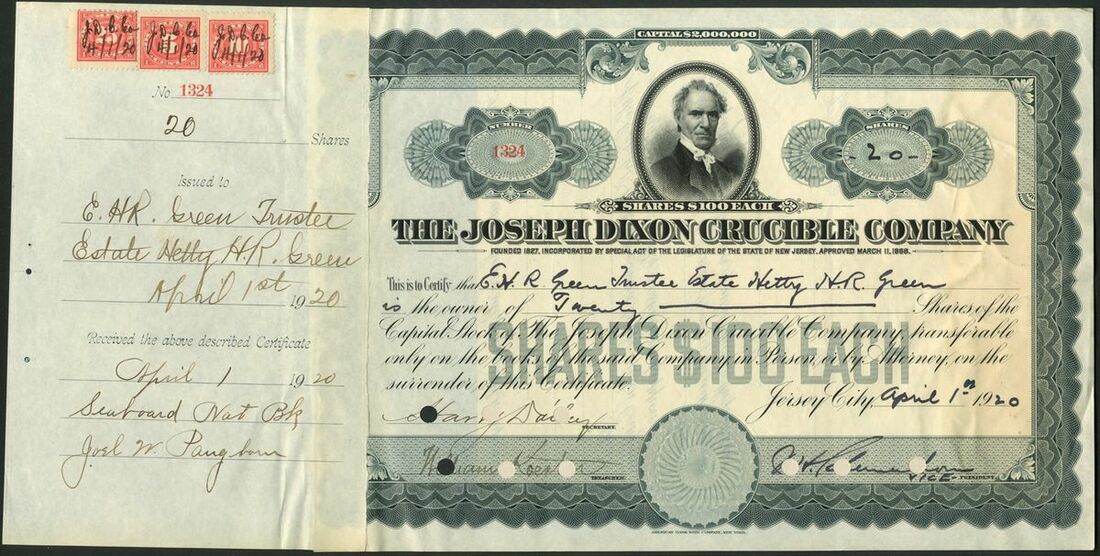 J.D.C. Co
4/1/20
J.D.C. Co
4/1/20
J.D.C. Co
4/1/20
No 1324
20
Shares
Issued to
E. H R. Green Trustee
Estate Hetty H. R. Green
April 1st 1920
Received the above described Certificate
April 1 1920
Seaboard Nat Bk
Joel W. Pangborn
CAPITAL $2,000,000
NUMBER
1324
SHARES
-20-
SHARES $100 EACH
THE JOSEPH DIXON CRUCIBLE COMPANY
FOUNDED 1827, INCORPORATED BY SPECIAL ACT OF THE LEGISLATURE OF THE STATE OF NEW JERSEY, APPROVED MARCH 11, 1868.
This is to Certify that E. H. R. Green Trustee Estate Hetty H. R. Green
is the owner of Twenty Shares of the
Capital Stock of The Joseph Dixon Crucible Company, transferable
only on the books of the said Company, in Person, or by Attorney, on the
surrender of this Certificate.
SHARES $100 EACH
Jersey City, April 1st 1920
Harry
SECRETARY.
William Koester
TREASURER.
VICE-PRESIDENT.
AMERICAN BANK NOTE COMPANY, NEW YORK.